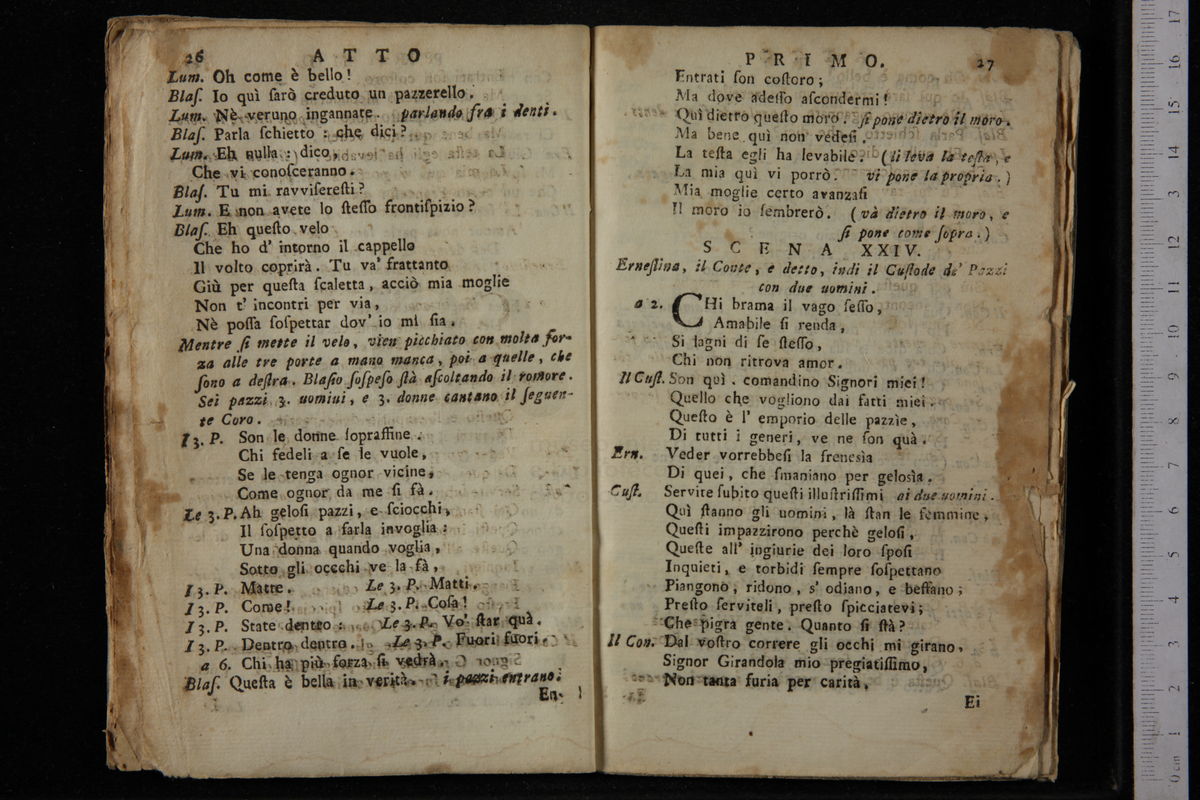 26 ATTO
Lum. Oh come è bello!
Blaſ. Io quì ſarò creduto un pazzerello.
Lum. Nè veruno ingannate. parlando fra i denti.
Blaſ. Parla ſchietto: che dici?
Lum. Eh nulla: dico,
Che vi conoſceranno.
Blaſ. Tu mi ravviſereſti?
Lum. E non avete lo ſteſſo frontiſpizio?
Blaſ. Eh queſto velo
Che ho d' intorno il cappello
Il volto coprirà. Tu va' frattanto
Giù per queſta ſcaletta, acciò mia moglie
Non t' incontri per via,
Nè poſſa ſoſpettar dov' io mi ſia.
Mentre ſi mette il velo, vien picchiato con molta for-
za alle tre porte a mano manca, poi a quelle, che
ſono a deſtra. Blaſio ſoſpeſo ſtà aſcoltando il romore.
Sei pazzi 3. uomini, e 3. donne cantano il ſeguen-
te Coro.
I 3. P. Son le donne ſopraffine.
Chi fedeli a ſe le vuole,
Se le tenga ognor vicine,
Come ognor da me ſi fà.
Le 3. P. Ah geloſi pazzi, e ſciocchi,
Il ſoſpetto a farla invoglia:
Una donna quando voglia,
Sotto gli occchi ve la fà,
I 3. P. Matte. Le 3. P. Matti.
I 3. P. Come! Le 3. P. Coſa!
I 3. P. State dentro: Le 3. P. Vo' ſtar quà.
I 3. P. Dentro dentro. Le 3. P. Fuori fuori.
a 6. Chi ha più forza ſi vedrà.
Blaſ. Queſta è bella in verità. i pazzi entrano.
En-
PRIMO. 27
Entrati ſon coſtoro;
Ma dove adeſſo aſcondermi!
Quì dietro queſto moro. ſi pone dietro il moro.
Ma bene quì non vedeſi.
La teſta egli ha levabile. (li leva la teſta, e
La mia quì vi porrò. vi pone la propria.)
Mia moglie certo avanzaſi
Il moro io ſembrerò. (và dietro il moro, e
ſi pone come ſopra.)
SCENA XXIV.
Erneſtina, il Conte, e detto, indi il Cuſtode de' Pazzi
con due uomini.
a 2. CHi brama il vago ſeſſo,
Amabile ſi renda,
Si lagni di ſe ſteſſo,
Chi non ritrova amor.
Il Cuſt. Son quì. comandino Signori miei!
Quello che vogliono dai fatti miei.
Queſto è l' emporio delle pazzìe,
Di tutti i generi, ve ne ſon quà.
Ern. Veder vorrebbeſi la frenesìa
Di quei, che ſmaniano per gelosìa.
Cuſt. Servite ſubito queſti illuſtriſſimi ai due uomini.
Quì ſtanno gli uomini, là ſtan le femmine,
Queſti impazzirono perchè geloſi,
Queſte all' ingiurie dei loro ſpoſi
Inquieti, e torbidi ſempre ſoſpettano
Piangono, ridono, s' odiano, e beffano;
Preſto ſerviteli, preſto ſpicciatevi;
Che pigra gente. Quanto ſi ſtà?
Il Con. Dal voſtro correre gli occhi mi girano,
Signor Girandola mio pregiatiſſimo,
Non tanta furia per carità,
Ei
17
16
15
14
13
12
11
10
9
8
7
6
5
4
3
2
1
0 cm